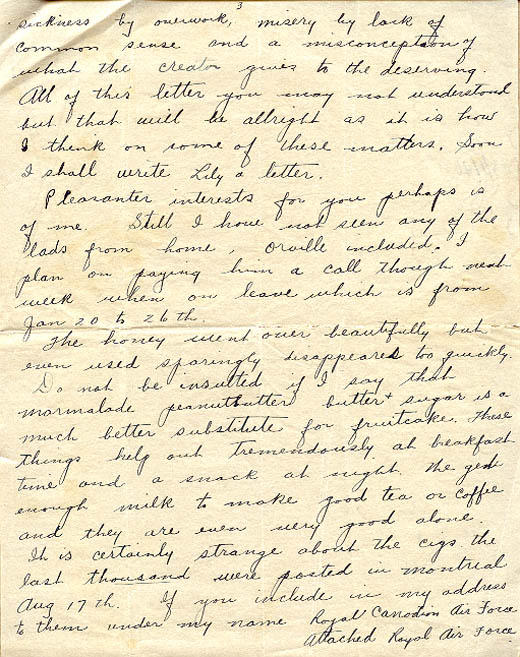 3
sickness by overwork, misery by lack of
common sense and a misconception of
what the creator gives to the deserving.
All of this letter you may not understand
but that will be allright as it is how
I think on some of these matters. Soon
I shall write Lily a letter.
Pleasanter interests for you perhaps is
of me. Still I have not seen any of the
lads from home, Orville included. I
plan on paying him a call though next
week when on leave which is from
Jan 20 to 26th.
The honey went over beautifully but
even used sparingly disappeared too quickly.
Do not be insulted if I say that
marmalade peanutbutter butter + sugar is a
much better substitute for fruitcake. These
things help out tremendously at breakfast
time and a snack at night. We get
enough milk to make good tea or coffee
and they are even very good alone.
It is certainly strange about the cigs the
last thousand were posted in montreal
Aug 17th. If you include in my address
to them under my name Royal Canadian Air Force
Attached Royal Air Force